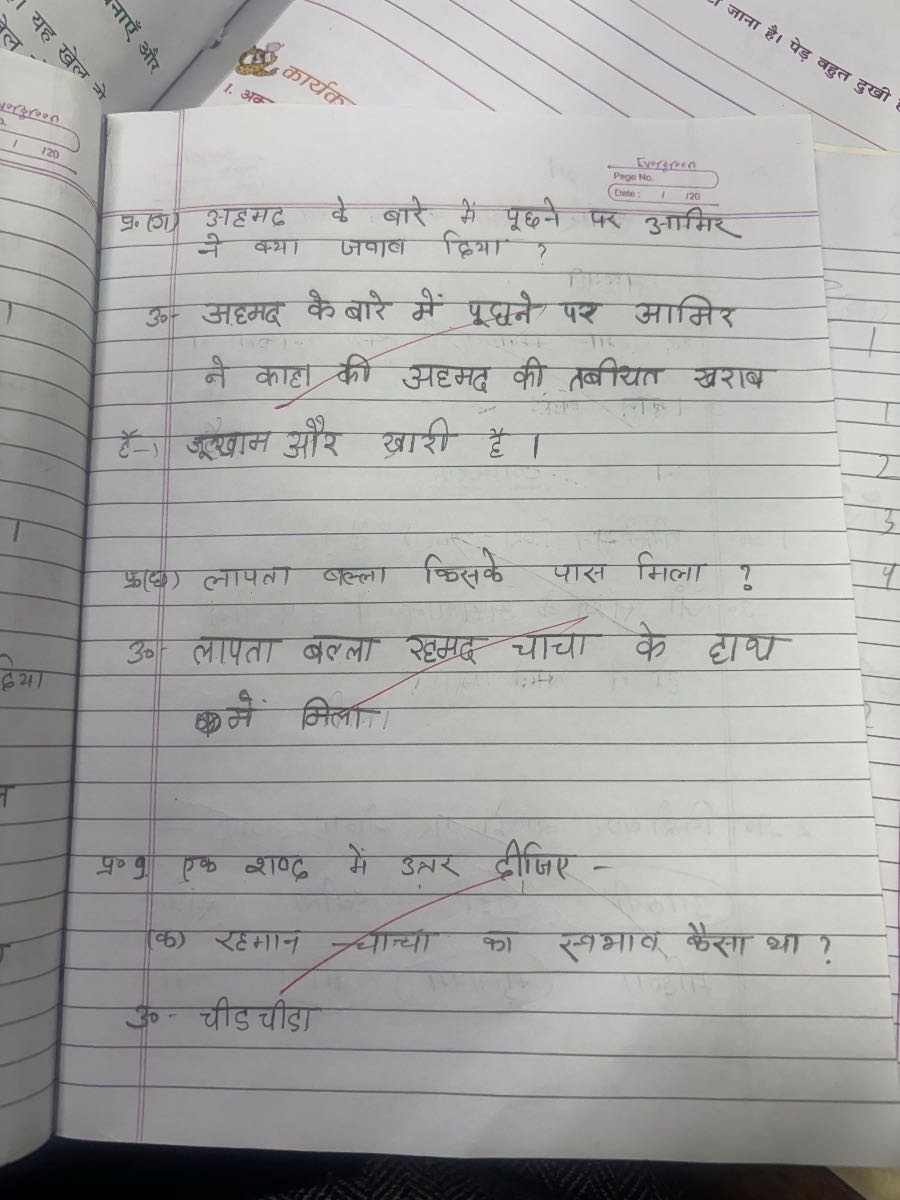 नाएँ और
। यह खेल
खेल
कार्यक
1. अक
जाना है। पेड़ बहुत दुखी
Evergreen
Page No.
Date: / /20
vergreen
/ /20
प्र.(ग) अहमद के बारे में पूछने पर आमिर
ने क्या जवाब दिया ?
उ०- अहमद के बारे में पूछने पर आमिर
ने काहा की अहमद की तबीयत खराब
है-। जूखाम और खारी है ।
प्र(घ) लापता बल्ला किसके पास मिला ?
उ०- लापता बल्ला रहमद चाचा के हाथ
में मिला।
प्र० 9 एक शब्द में उत्तर दीजिए -
(क) रहमान चाचा का स्वभाव कैसा था ?
उ०- चीडचीडा
दिया
1
1
2
3
4